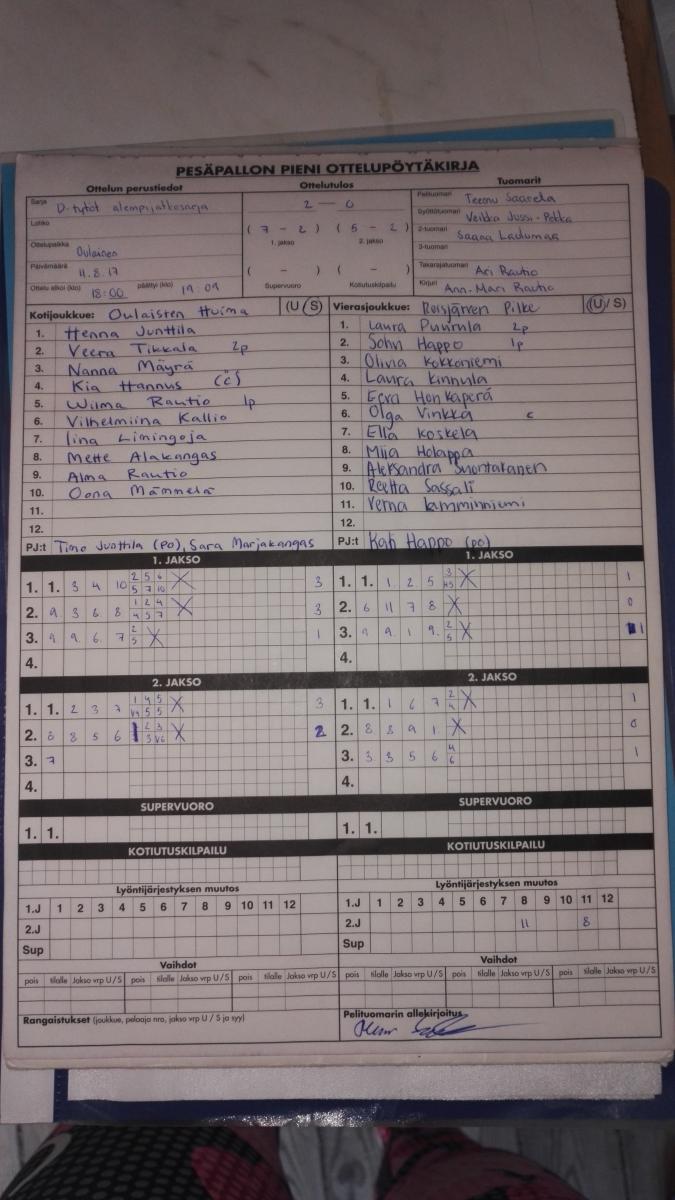 PESÄPALLON PIENI OTTELUPÖYTÄKIRJA
Ottelun perustiedot Ottelutulos Tuomarit
Sarja D-tytöt alempijatkosarja 2 — 0 Pelituomari Teemu Saarela
Lohko ( 7 - 2 ) ( 5 - 2 ) Syöttötuomari Veikka Jussi-Pekka
1. jakso 2. jakso 2-tuomari Saana
Ottelupaikka Oulainen 3-tuomari
Päivämäärä 11.8.17 ( - ) ( - ) Takarajatuomari Ari Rautio
Ottelu alkoi (klo) 18:00 päättyi (klo) 19:09 Supervuoro Kotiutuskilpailu Kirjuri Ann-Mari Rautio
Kotijoukkue: Oulaisten Huima (U/S) Vierasjoukkue: Reisjärven Pilke (U/S)
1. Henna Junttila 1. Laura Puurula 2p
2. Veera Tikkala 2p 2. Sohvi Happo 1p
3. Nanna Mäyrä 3. Olivia Kokkoniemi
4. Kia Hannus (c) 4. Laura Kinnula
5. Wilma Rautio 1p 5. Eeva Honkaperä
6. Vilhelmiina Kallio 6. Olga Vinkka c
7. Iina Limingoja 7. Ella Koskela
8. Mette Alakangas 8. Mija Holappa
9. Alma Rautio 9. Aleksandra
10. Oona Männelä 10. Reetta Sassali
11. 11. Verna Lamminniemi
12. 12.
PJ:t Timo Junttila (PO), Sara Marjakangas PJ:t Kati Happo (PO)
1. JAKSO 1. JAKSO
1. 1. 3 4 10 2 5 6 X 3 1. 1. 1 2 5 3 X 1
5 7 10
2. 9 3 6 8 1 2 4 X 3 2. 6 11 7 8 X 0
4 5 7
3. 9 9 6 7 2 X 1 3. 9 9 1 9 2 X 1
5 5
4. 4.
2. JAKSO 2. JAKSO
1. 1. 2 3 7 1 4 5 X 3 1. 1. 1 6 7 2 X 1
5 5 4
2. 8 8 5 6 1 2 3 X 2 2. 8 8 9 1 X 0
3
3. 7 3. 3 3 5 6 4 1
6
4. 4.
SUPERVUORO SUPERVUORO
1. 1. 1. 1.
KOTIUTUSKILPAILU KOTIUTUSKILPAILU
Lyöntijärjestyksen muutos Lyöntijärjestyksen muutos
1.J 1 2 3 4 5 6 7 8 9 10 11 12 1.J 1 2 3 4 5 6 7 8 9 10 11 12
2.J 2.J 11 8
Sup Sup
Vaihdot Vaihdot
pois tilalle Jakso vrp U/S pois tilalle Jakso vrp U/S pois tilalle Jakso vrp U/S pois tilalle Jakso vrp U/S pois tilalle Jakso vrp U/S pois tilalle Jakso vrp U/S
Rangaistukset (joukkue, pelaaja nro, jakso vrp U / S ja syy) Pelituomarin allekirjoitus